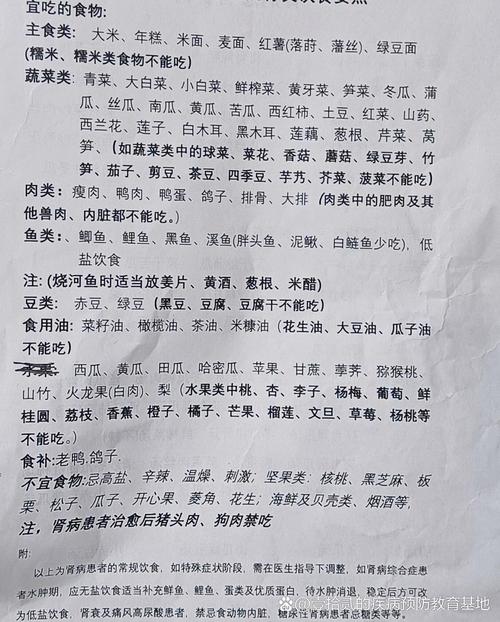 宜吃的食物:
主食类: 大米、年糕、米面、麦面、红薯(落莳、藩丝)、绿豆面
(糯米、糯米类食物不能吃)
蔬菜类: 青菜、大白菜、小白菜、鲜榨菜、黄牙菜、笋菜、冬瓜、蒲
瓜、丝瓜、南瓜、黄瓜、苦瓜、西红柿、土豆、红菜、山药、
西兰花、莲子、白木耳、黑木耳、莲藕、葱根、芹菜、莴
笋、(如蔬菜类中的球菜、菜花、香菇、蘑菇、绿豆芽、竹
笋、茄子、剪豆、茶豆、四季豆、芋艿、芥菜、菠菜不能吃)
肉类: 瘦肉、鸭肉、鸭蛋、鸽子、排骨、大排 (肉类中的肥肉及其
他兽肉、内脏都不能吃。)
鱼类:、鲫鱼、鲤鱼、黑鱼、溪鱼(胖头鱼、泥鳅、白鲢鱼少吃)，低
盐饮食
注: (烧河鱼时适当放姜片、黄酒、葱根、米醋)
豆类: 赤豆、绿豆 (黑豆、豆腐、豆腐干不能吃)
食用油: 菜籽油、橄榄油、茶油、米糠油 (花生油、大豆油、瓜子油
不能吃)
西瓜、黄瓜、田瓜、哈密瓜、苹果、甘蔗、荸荠、猕猴桃、
山竹、火龙果(白肉)、梨 (水果类中桃、杏、李子、杨梅、葡萄、鲜
桂圆、荔枝、香蕉、橙子、橘子、芒果、榴莲、文旦、草莓、杨桃等
不能吃。)
食补:老鸭.鸽子.
不宜食物:忌高盐、辛辣、温燥、刺激; 坚果类: 核桃、黑芝麻、板
栗、松子、瓜子、开心果、菱角、花生; 海鲜及贝壳类、烟酒等,
注，肾病患者治愈后猪头肉、狗肉禁吃
附:
以上为肾病患者的常规饮食，如特殊症状阶段，需在医生指导下调整，如肾病综合症患
者水肿期，应无盐饮食适当补充鲜鱼、鲤鱼、蛋类及优质蛋白，待水肿消退，稳定后方可改
为低盐饮食，肾衰及痛风高尿酸患者，禁忌食动物内脏，糖尿性肾病患者忌糖类等等。
@壹拾贰的疾病预防教育基地